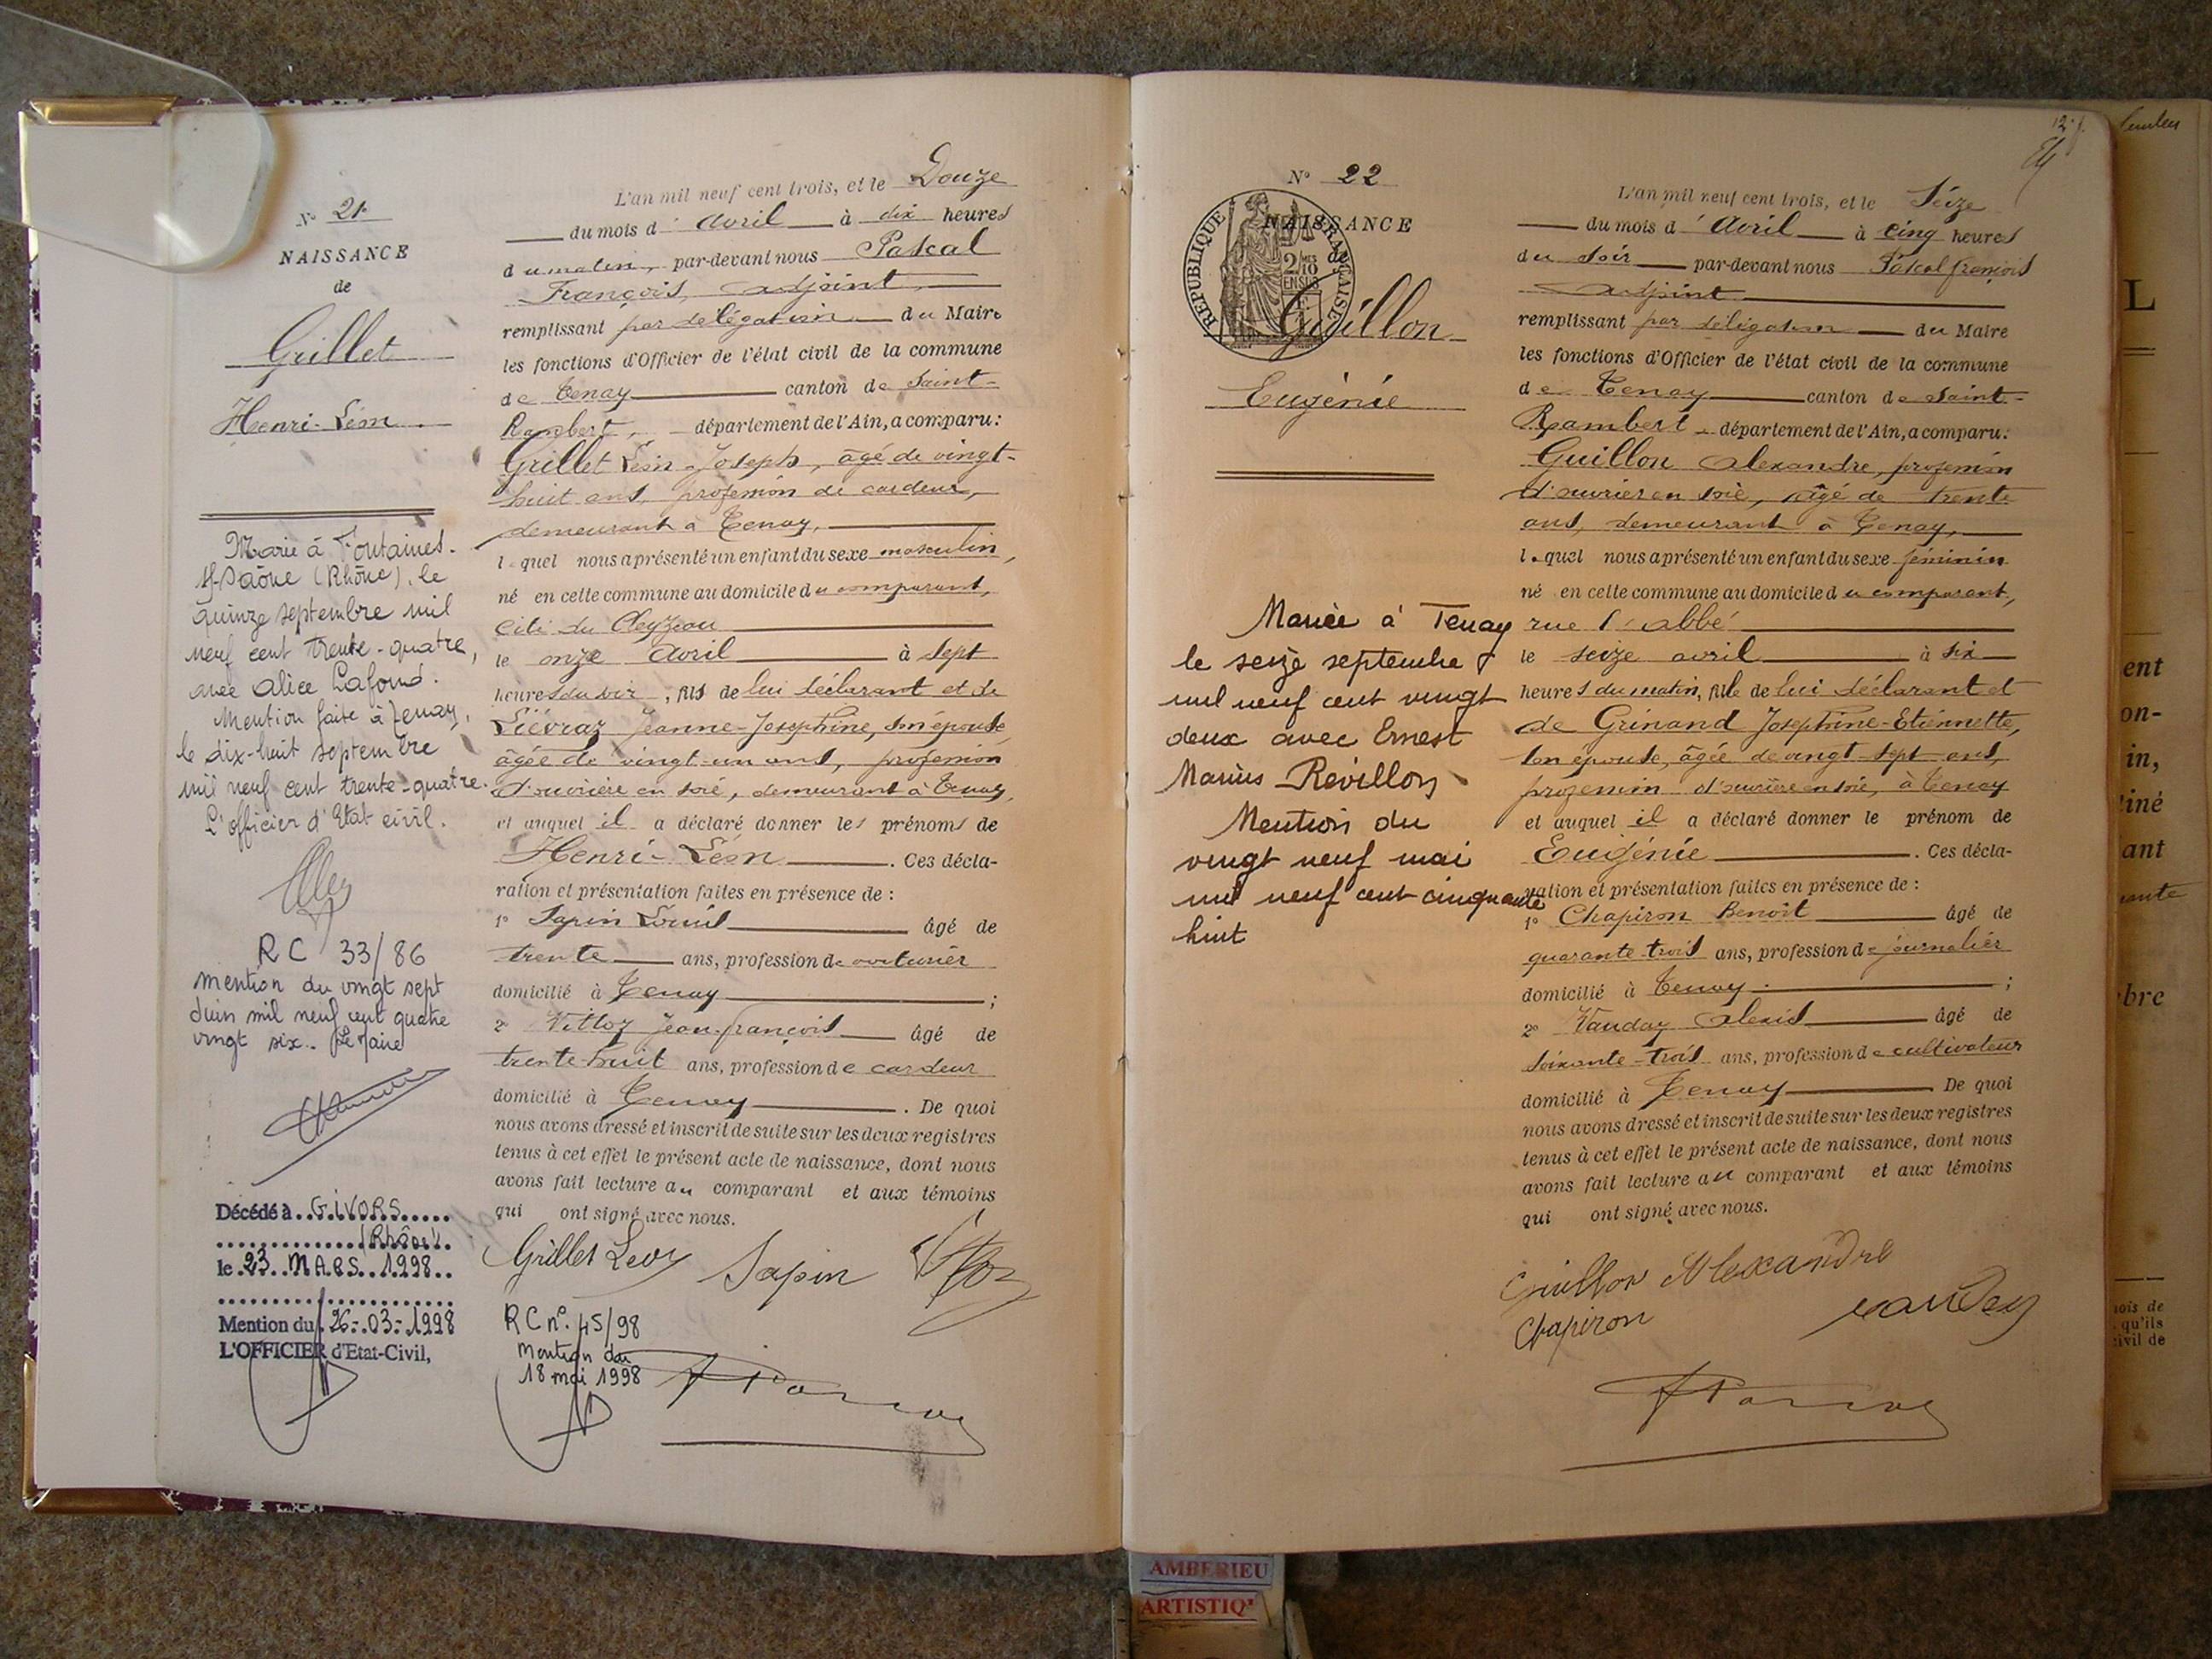 N° 21
NAISSANCE
de
Grillet
Henri-Léon
Marié à Fontaines-
s/-Saône (Rhône), le
quinze septembre mil
neuf cent trente-quatre,
avec Alice Lafond.
Mention faite à Tenay,
le dix-huit septembre
mil neuf cent trente-quatre.
L'officier d'Etat civil.
RC 33/86
mention du vingt sept
Juin mil neuf cent quatre
vingt six. Le Maire
Décédé à GIVORS
(Rhône)
le 23 MARS 1998
Mention du 26-03-1998
L'OFFICIER d'Etat-Civil,
L'an mil neuf cent trois, et le Douze
du mois d'Avril à dix heures
du matin, par-devant nous Pascal
François, adjoint
remplissant par délégation du Maire
les fonctions d'Officier de l'état civil de la commune
de Tenay canton de Saint-
Rambert, département de l'Ain, a comparu:
Grillet Léon-Joseph, âgé de vingt-
huit ans, profession de cardeur,
demeurant à Tenay,
lequel nous a présenté un enfant du sexe masculin,
né en cette commune au domicile du comparant,
Cité du Cleyzieu
le onze Avril à sept
heures du soir, fils de lui déclarant et de
Liévraz Jeanne-Joséphine, son épouse
âgée de vingt-un ans, profession
d'ouvrière en soie, demeurant à Tenay,
et auquel il a déclaré donner les prénoms de
Henri-Léon. Ces décla-
ration et présentation faites en présence de :
1° Sapin Louis âgé de
trente ans, profession de voiturier
domicilié à Tenay ;
2° Vittoz Jean-François âgé de
trente-huit ans, profession de cardeur
domicilié à Tenay. De quoi
nous avons dressé et inscrit de suite sur les deux registres
tenus à cet effet le présent acte de naissance, dont nous
avons fait lecture au comparant et aux témoins
qui ont signé avec nous.
Grillet Léon Sapin Vittoz
RC n° 45/98
Mention du
18 mai 1998
N° 22
NAISSANCE
de
RÉPUBLIQUE FRANÇAISE
2/10 EN SUS
Guillon
Eugénie
Mariée à Tenay
le seize septembre
mil neuf cent vingt
deux avec Ernest
Marius Révillon
Mention du
vingt neuf mai
mil neuf cent cinquante
huit
L'an mil neuf cent trois, et le Seize
du mois d'Avril à cinq heures
du soir par-devant nous Pascal François
adjoint
remplissant par délégation du Maire
les fonctions d'Officier de l'état civil de la commune
de Tenay canton de Saint-
Rambert, département de l'Ain, a comparu:
Guillon Alexandre, profession
d'ouvrier en soie, âgé de trente
ans, demeurant à Tenay,
lequel nous a présenté un enfant du sexe féminin
né en cette commune au domicile du comparant,
rue l'abbé
le seize avril à six
heures du matin, fille de lui déclarant et
de Grinand Joséphine-Etiennette,
son épouse, âgée de vingt-sept ans,
profession d'ouvrière en soie, à Tenay
et auquel il a déclaré donner le prénom de
Eugénie. Ces décla-
ration et présentation faites en présence de :
1° Chapiron Benoit âgé de
quarante-trois ans, profession de journalier
domicilié à Tenay ;
2° Vauday Alexis âgé de
soixante-trois ans, profession de cultivateur
domicilié à Tenay. De quoi
nous avons dressé et inscrit de suite sur les deux registres
tenus à cet effet le présent acte de naissance, dont nous
avons fait lecture au comparant et aux témoins
qui ont signé avec nous.
Guillon Alexandre
Chapiron Vauday
L
ent
on-
in,
ant
bre
mois de
qu'ils
civil de
AMBERIEU
ARTISTIQ